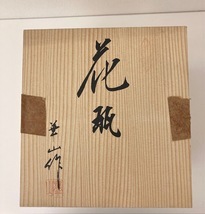 花瓶
華山作